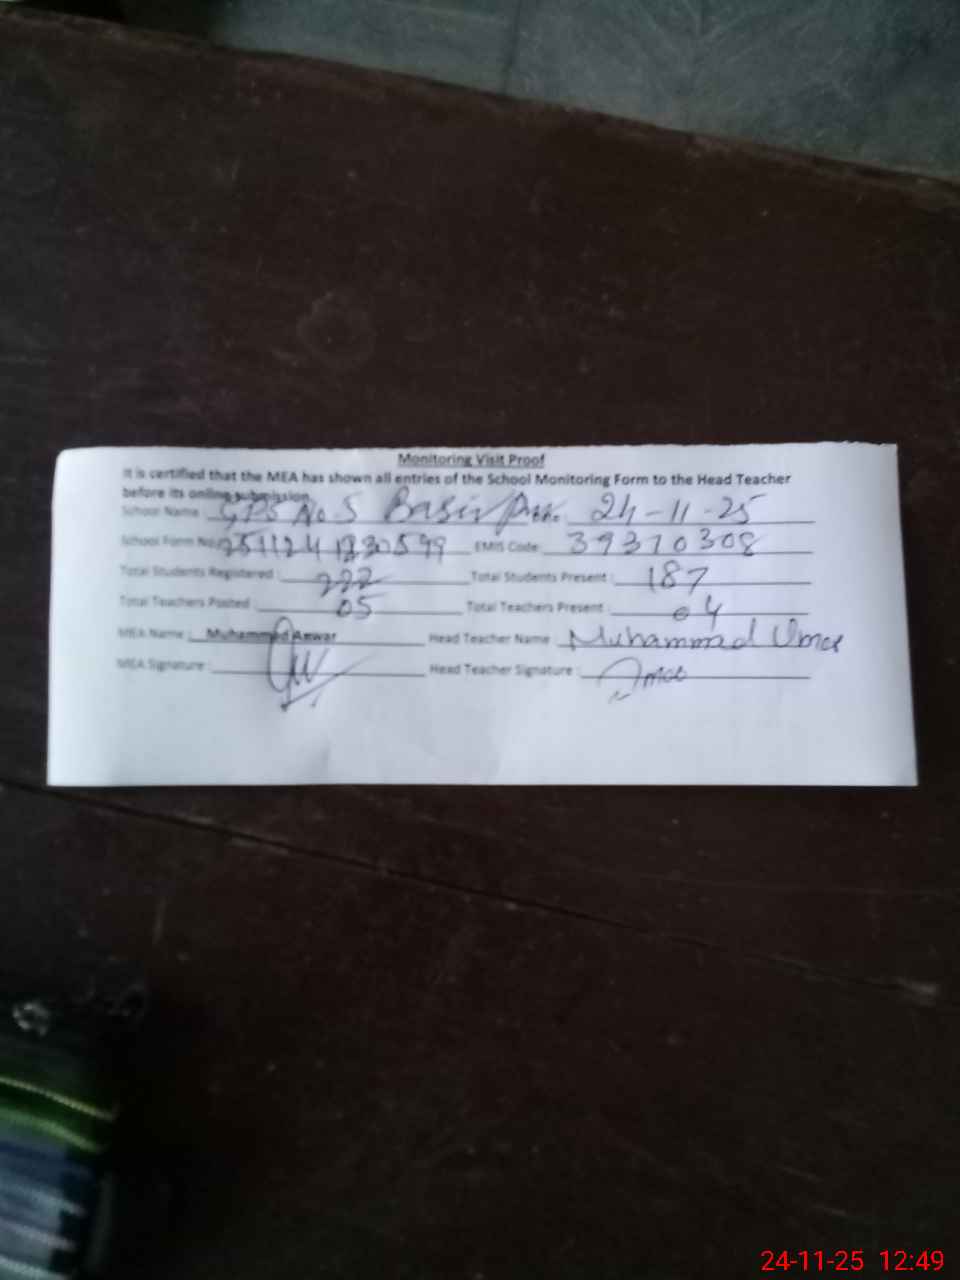 Monitoring Visit Proof
It is certified that the MEA has shown all entries of the School Monitoring Form to the Head Teacher
before its online submission
School Name: GPS No 5 Basirpur. 24-11-25
School Form No: EMIS Code: 39310308
Total Students Registered: 222 Total Students Present: 187
Total Teachers Posted: 05 Total Teachers Present: 04
MEA Name: Muhammad Anwar Head Teacher Name: Muhammad Umar
MEA Signature: Head Teacher Signature:
24-11-25 12:49